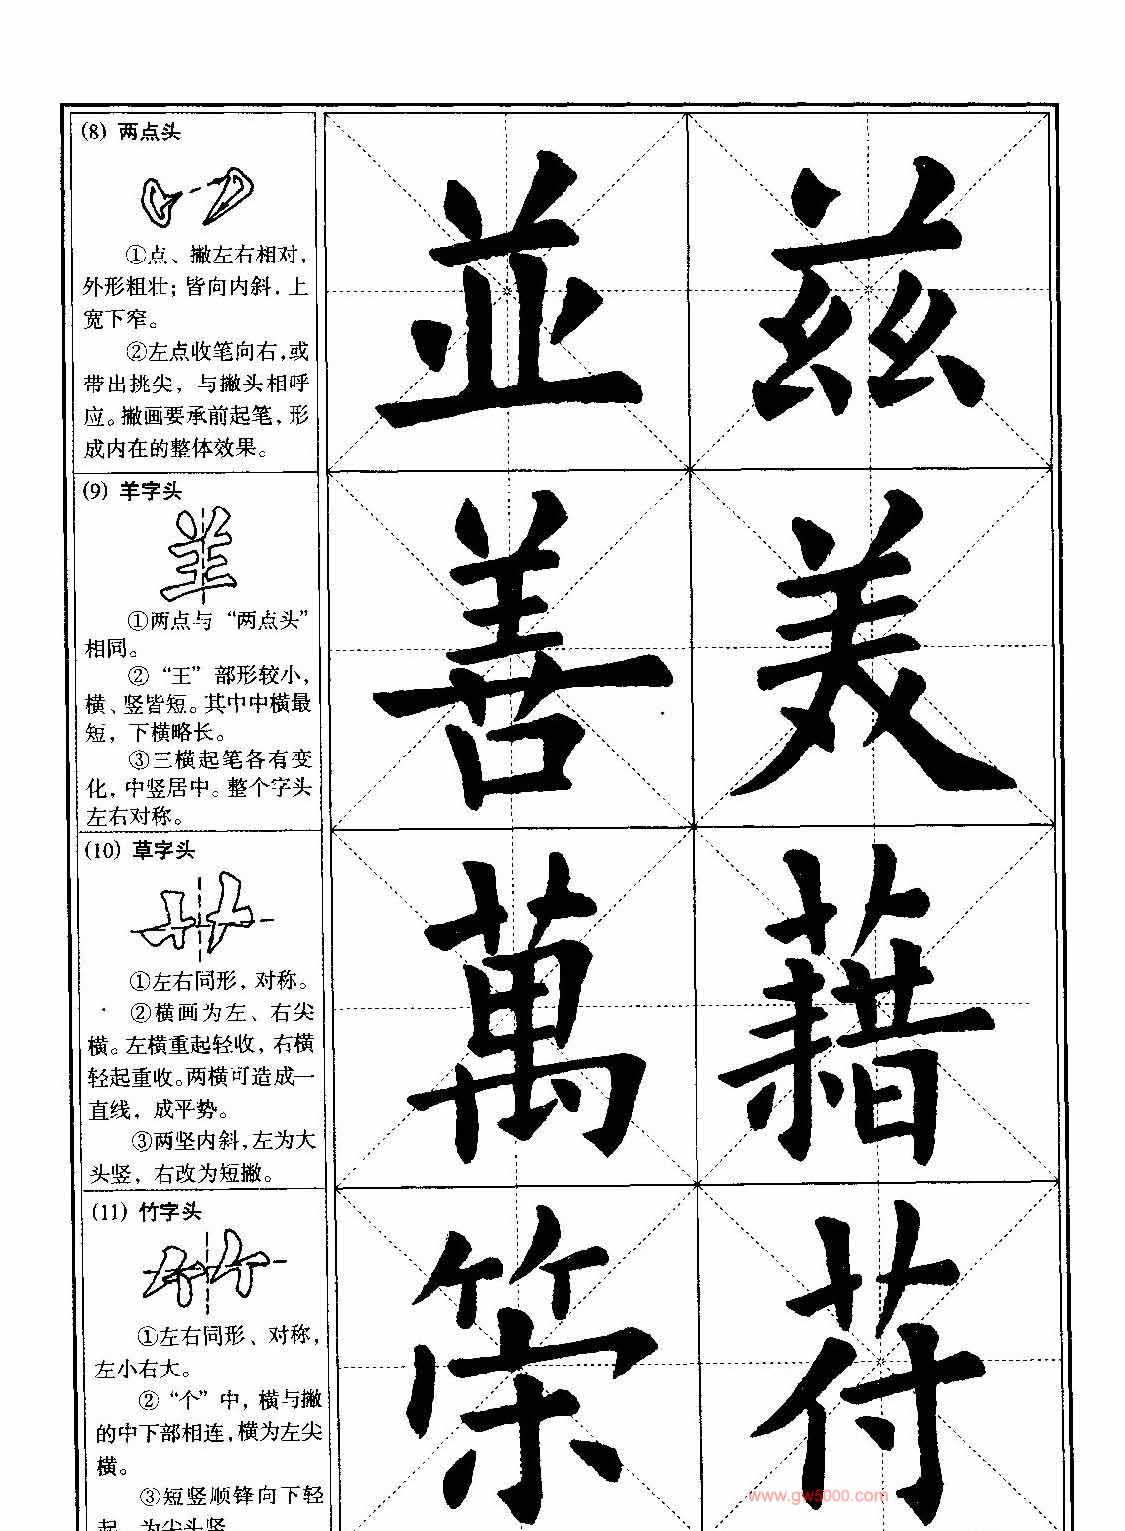 (8) 两点头
①点、撇左右相对,
外形粗壮；皆向内斜，上
宽下窄。
②左点收笔向右,或
带出挑尖，与撇头相呼
应。撇画要承前起笔，形
成内在的整体效果。
並 兹
(9) 羊字头
①两点与“两点头”
相同。
②“王”部形较小,
横、竖皆短。其中中横最
短，下横略长。
③三横起笔各有变
化，中竖居中。整个字头
左右对称。
善 美
(10) 草字头
①左右同形，对称。
②横画为左、右尖
横。左横重起轻收，右横
轻起重收。两横可造成一
直线，成平势。
③两坚内斜,左为大
头竖，右改为短撇。
萬 藉
(11) 竹字头
①左右同形、对称,
左小右大。
②“个”中，横与撇
的中下部相连,横为左尖
横。
③短竖顺锋向下轻
起，为尖头竖。
策 苻
www.gw5000.com